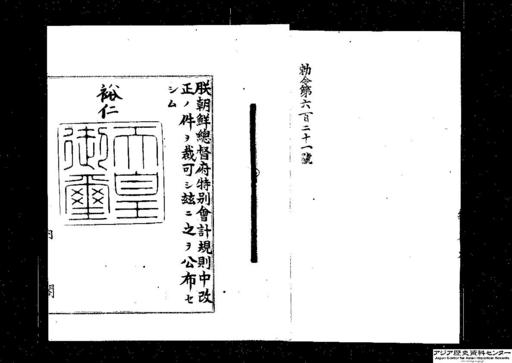 勅令第六百二十一號
朕朝鮮總督府特別會計規則中改
正ノ件ヲ裁可シ玆ニ之ヲ公布セ
シム
裕仁
天皇
御璽
内
閣
アジア歴史資料センター
Japan Center for Asian Historical Records